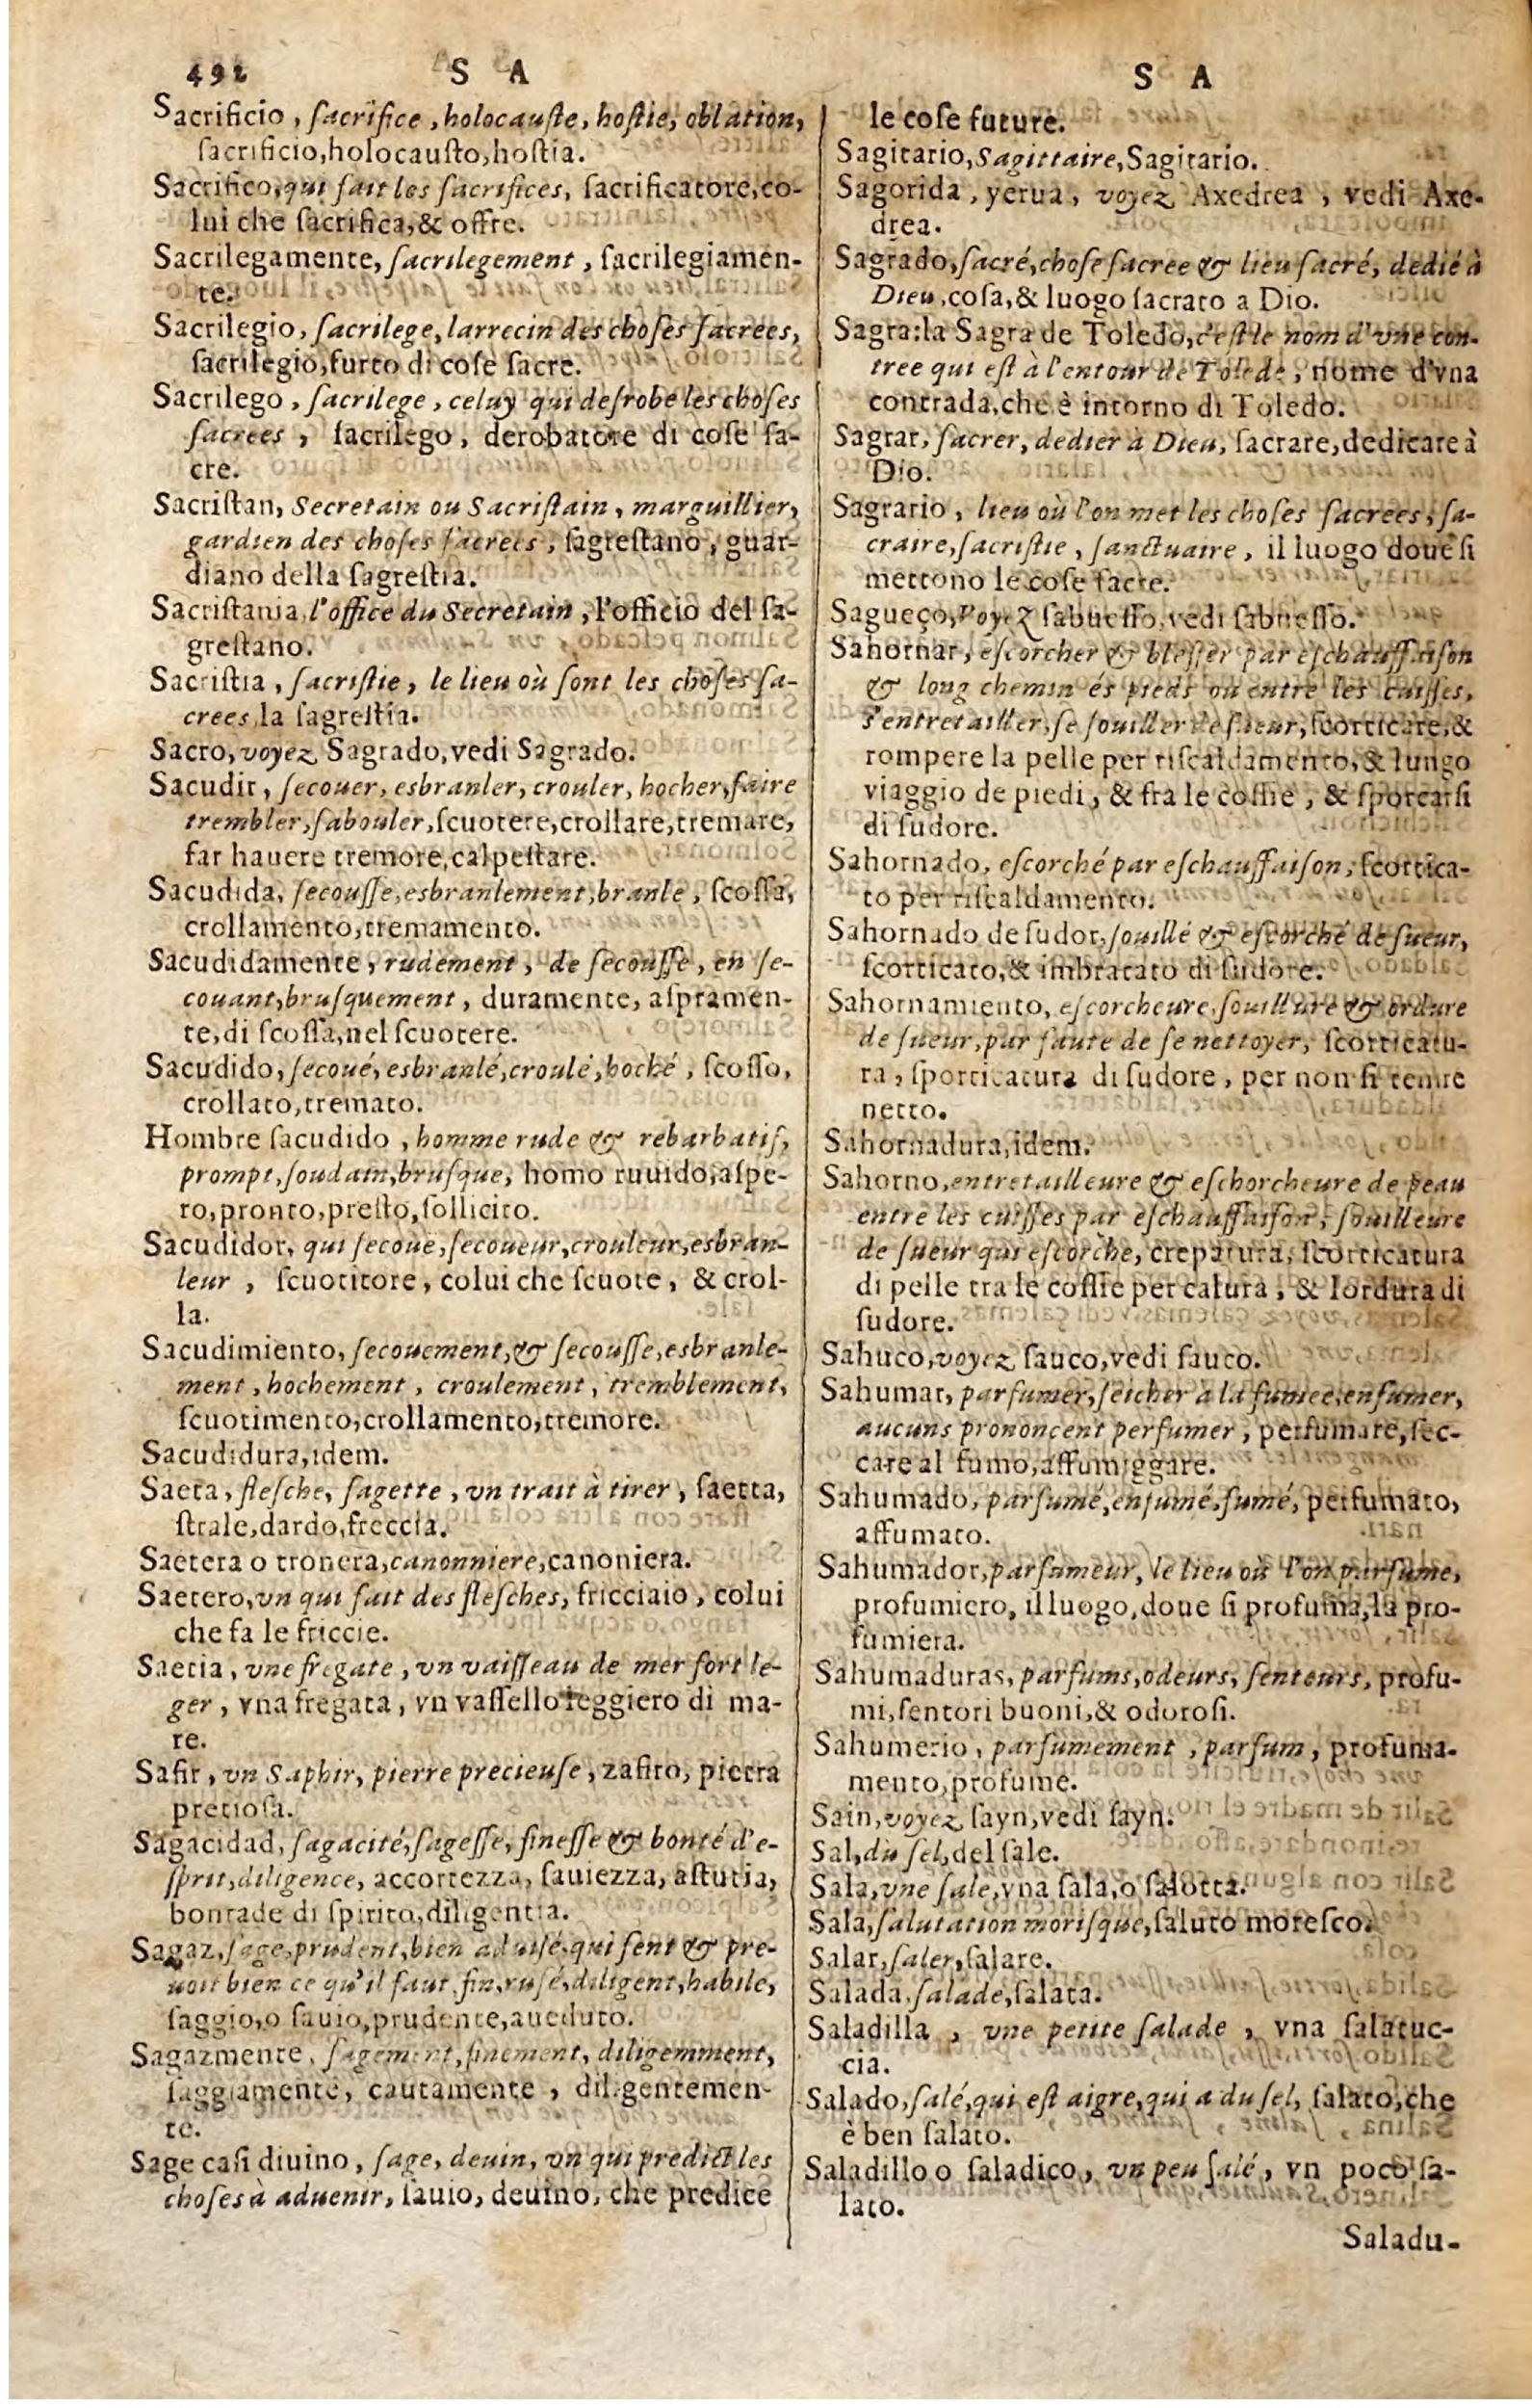 492 S A
Sacrificio, ſacrifice, holocauſte, hoſtie, oblation,
ſacrificio, holocauſto, hoſtia.
Sacrifico, qui fait les ſacrifices, ſacrificatore, co-
lui che ſacrifica, & offre.
Sacrilegamente, ſacrilegement, ſacrilegiamen-
te.
Sacrilegio, ſacrilege, larrecin des choſes ſacrees,
ſacrilegio, furto di coſe ſacre.
Sacrilego, ſacrilege, celuy qui deſrobe les choſes
ſacrees, ſacrilego, derobatore di coſe ſa-
cre.
Sacriſtan, Secretain ou Sacriſtain, marguillier,
gardien des choſes ſacrees, ſagreſtano, guar-
diano della ſagreſtia.
Sacriſtania, l'office du Secretain, l'officio del ſa-
greſtano.
Sacriſtia, ſacriſtie, le lieu où ſont les choſes ſa-
crees, la ſagreſtia.
Sacro, voyez Sagrado, vedi Sagrado.
Sacudir, ſecouer, esbranler, crouler, hocher, faire
trembler, ſabouler, ſcuotere, crollare, tremare,
far hauere tremore, calpeſtare.
Sacudida, ſecouſſe, esbranlement, branle, ſcoſſa,
crollamento, tremamento.
Sacudidamente, rudement, de ſecouſſe, en ſe-
couant, bruſquement, duramente, aſpramen-
te, di ſcoſſa, nel ſcuotere.
Sacudido, ſecoué, esbranlé, croulé, hoché, ſcoſſo,
crollato, tremato.
Hombre ſacudido, homme rude & rebarbatif,
prompt, ſoudain, bruſque, homo ruuido, aſpe-
ro, pronto, preſto, ſollicito.
Sacudidor, qui ſecoue, ſecoueur, crouleur, esbran-
leur, ſcuotitore, colui che ſcuote, & crol-
la.
Sacudimiento, ſecouement, & ſecouſſe, esbranle-
ment, hochement, croulement, tremblement,
ſcuotimento, crollamento, tremore.
Sacudidura, idem.
Saeta, fleſche, ſagette, vn trait à tirer, ſaetta,
ſtrale, dardo, freccia.
Saetera o tronera, canonniere, canoniera.
Saetero, vn qui fait des fleſches, fricciaio, colui
che fa le friccie.
Saetia, vne fregate, vn vaiſſeau de mer fort le-
ger, vna fregata, vn vaſſello leggiero di ma-
re.
Safir, vn Saphir, pierre precieuſe, zafiro, pietra
pretioſa.
Sagacidad, ſagacité, ſageſſe, fineſſe & bonté d'e-
ſprit, diligence, accortezza, ſauiezza, aſtutia,
bontade di ſpirito, diligentia.
Sagaz, ſage, prudent, bien aduiſé, qui ſent & pre-
uoit bien ce qu'il faut, fin, ruſé, diligent, habile,
ſaggio, o ſauio, prudente, aueduto.
Sagazmente, ſagement, finement, diligemment,
ſaggiamente, cautamente, diligentemen-
te.
Sage caſi diuino, ſage, deuin, vn qui predict les
choſes à aduenir, ſauio, deuino, che predice
S A
le coſe future.
Sagitario, Sagittaire, Sagitario.
Sagorida, yerua, voyez Axedrea, vedi Axe-
drea.
Sagrado, ſacré, choſe ſacree & lieu ſacré, dedié à
Dieu, coſa, & luogo ſacrato a Dio.
Sagra: la Sagra de Toledo, c'eſt le nom d'vne con-
tree qui eſt à l'entour de Tolede, nome d'vna
contrada, che è intorno di Toledo.
Sagrar, ſacrer, dedier à Dieu, ſacrare, dedicare à
Dio.
Sagrario, lieu où l'on met les choſes ſacrees, ſa-
craire, ſacriſtie, ſanctuaire, il luogo doue ſi
mettono le coſe ſacre.
Sagueço, voyez ſabueſſo, vedi ſabueſſo.
Sahornar, eſcorcher & bleſſer par eſchauffaiſon
& long chemin és pieds ou entre les cuiſſes,
s'entretailler, ſe ſouiller de ſueur, ſcorticare, &
rompere la pelle per riſcaldamento, & lungo
viaggio de piedi, & fra le coſſie, & ſporcarſi
di ſudore.
Sahornado, eſcorché par eſchauffaiſon, ſcortica-
to per riſcaldamento.
Sahornado de ſudor, ſouillé & eſcorché de ſueur,
ſcorticato, & imbratato di ſudore.
Sahornamiento, eſcorcheure, ſouillure & ordure
de ſueur, par faute de ſe nettoyer, ſcorticatu-
ra, ſporticatura di ſudore, per non ſi tenire
netto.
Sahornadura, idem.
Sahorno, entretailleure & eſchorcheure de peau
entre les cuiſſes par eſchauffaiſon, ſouilleure
de ſueur qui eſcorche, crepatura, ſcorticatura
di pelle tra le coſſie per calura, & lordura di
ſudore.
Sahuco, voyez ſauco, vedi ſauco.
Sahumar, parfumer, ſeicher à la fumee, enfumer,
aucuns prononcent perfumer, perfumare, ſec-
care al fumo, affumiggare.
Sahumado, parfumé, enfumé, fumé, perfumato,
affumato.
Sahumador, parfumeur, le lieu où l'on parfume,
profumiero, il luogo, doue ſi profuma, la pro-
fumiera.
Sahumaduras, parfums, odeurs, ſenteurs, profu-
mi, ſentori buoni, & odoroſi.
Sahumerio, parfumement, parfum, profuma-
mento, profume.
Sain, voyez ſayn, vedi ſayn.
Sal, du ſel, del ſale.
Sala, vne ſale, vna ſala, o ſalotta.
Sala, ſalutation moriſque, ſaluto moreſco.
Salar, ſaler, ſalare.
Salada, ſalade, ſalata.
Saladilla, vne petite ſalade, vna ſalatuc-
cia.
Salado, ſalé, qui eſt aigre, qui a du ſel, ſalato, che
è ben ſalato.
Saladillo o ſaladico, vn peu ſalé, vn poco ſa-
lato.
Saladu-